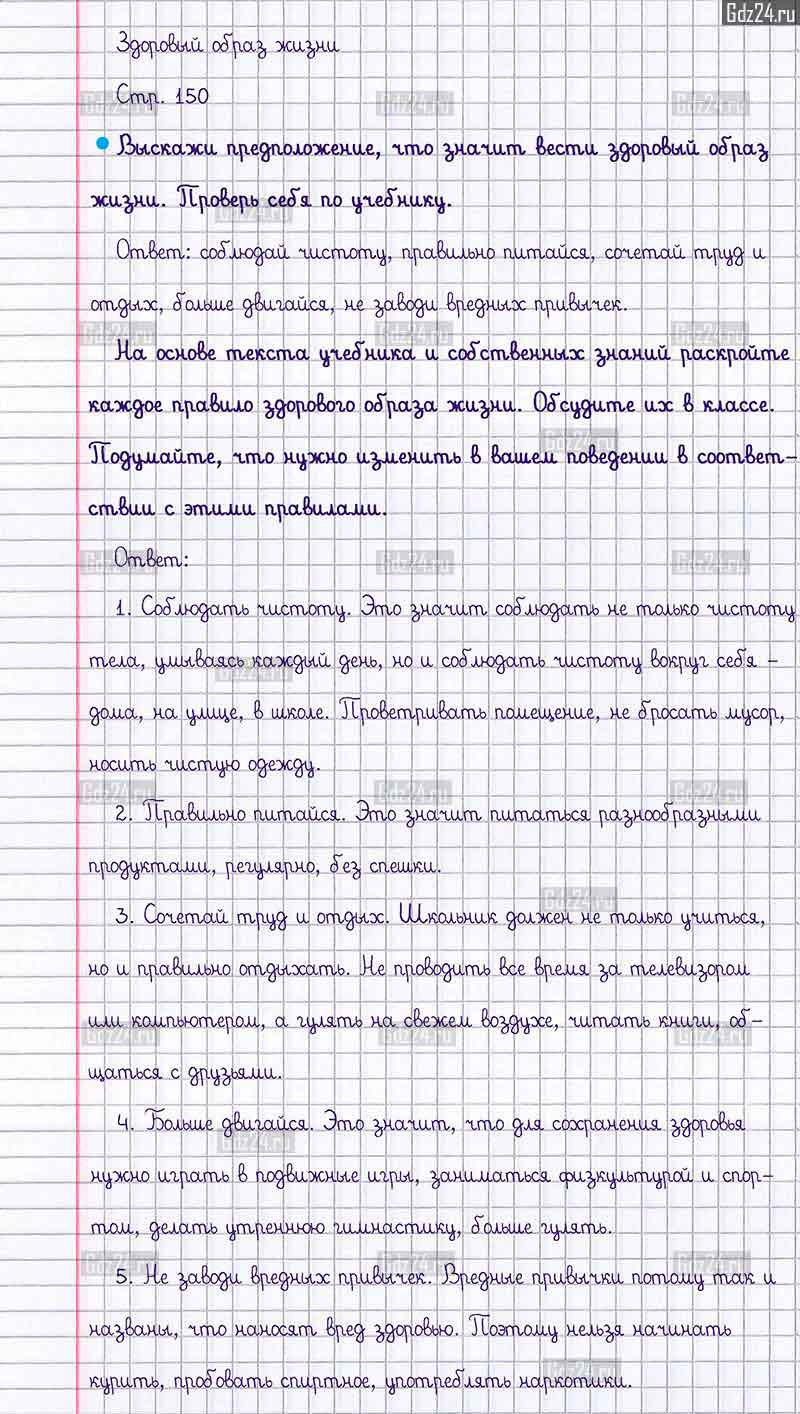 Gdz24.ru
Здоровый образ жизни
Стр. 150
Выскажи предположение, что значит вести здоровый образ
жизни. Проверь себя по учебнику.
Ответ: соблюдай чистоту, правильно питайся, сочетай труд и
отдых, больше двигайся, не заводи вредных привычек.
На основе текста учебника и собственных знаний раскройте
каждое правило здорового образа жизни. Обсудите их в классе.
Подумайте, что нужно изменить в вашем поведении в соответ-
ствии с этими правилами.
Ответ:
1. Соблюдать чистоту. Это значит соблюдать не только чистоту
тела, умываясь каждый день, но и соблюдать чистоту вокруг себя -
дома, на улице, в школе. Проветривать помещение, не бросать мусор,
носить чистую одежду.
2. Правильно питайся. Это значит питаться разнообразными
продуктами, регулярно, без спешки.
3. Сочетай труд и отдых. Школьник должен не только учиться,
но и правильно отдыхать. Не проводить все время за телевизором
или компьютером, а гулять на свежем воздухе, читать книги, об-
щаться с друзьями.
4. Больше двигайся. Это значит, что для сохранения здоровья
нужно играть в подвижные игры, заниматься физкультурой и спор-
том, делать утреннюю гимнастику, больше гулять.
5. Не заводи вредных привычек. Вредные привычки потому так и
названы, что наносят вред здоровью. Поэтому нельзя начинать
курить, пробовать спиртное, употреблять наркотики.